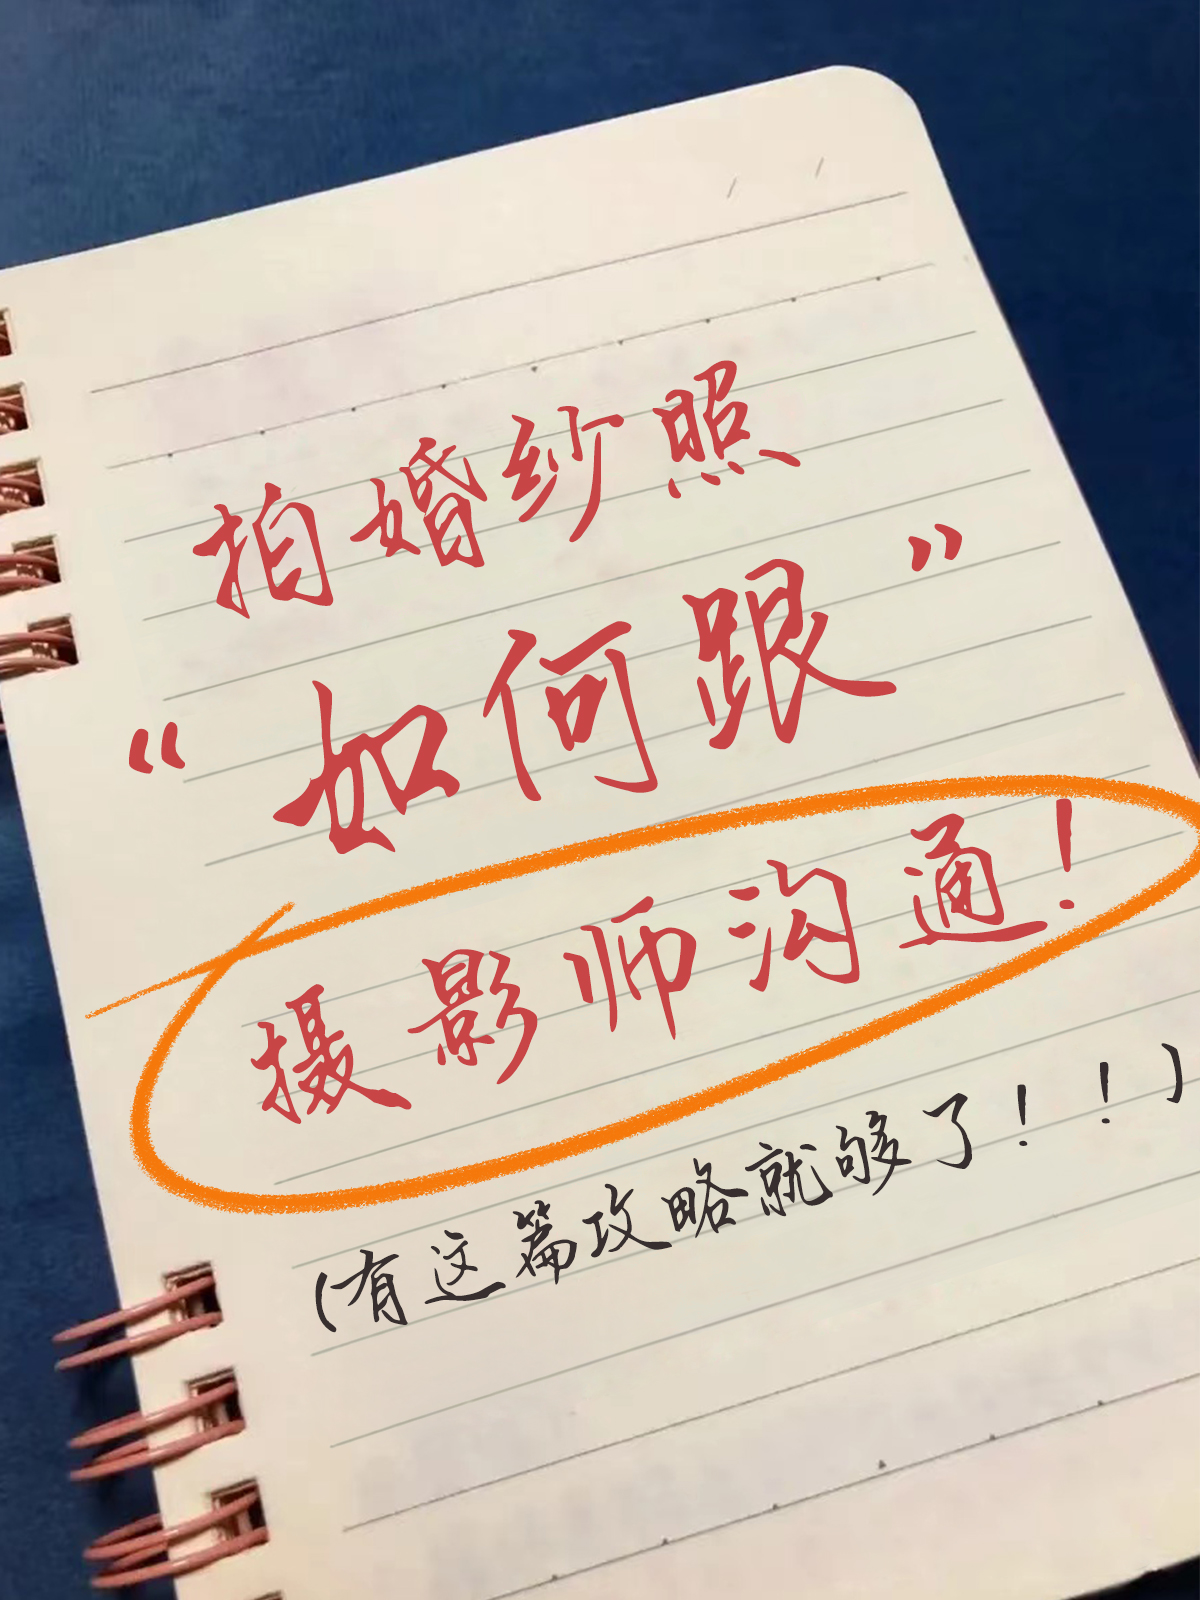 拍婚纱照
“如何跟”
摄影师沟通!
(有这篇攻略就够了!!)